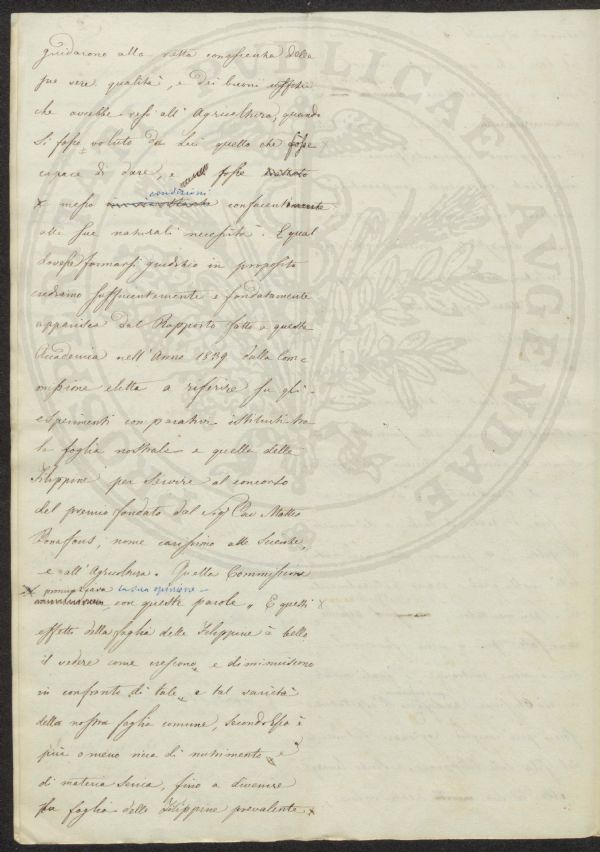 guidarono alla retta conoscienza della
sue vere qualità, e dei buoni effetti
che avrebbe resi all'Agricoltura, quando
si fosse voluto da Lei quello che fosse
capace di dare, e fosse
condizioni
x messo confacenti
alle sue naturali necessità. E qual
dovesse formarsi giudizio in proposito
crediamo sufficientemente e fondatamente
apparisca dal Rapporto fatto a questa
Accademia nell'Anno 1839 dalla Com=
missione eletta a riferire su gli
esperimenti comparativi istituiti tra
la foglia nostrale e quella delle
Filippine per servire al concorso
del premio fondato dal Sigr Cav Matteo
Bonafous, nome carissimo alle Scienze,
e all'Agricoltura. Quella Commissione
x pronunziava la sua opinione
con queste parole „ E questi x
effetti della foglia delle Filippine è bello
il vedere come crescono e diminuiscono
in confronto di tale, e tal varietà
della nostra foglia comune, secondo Essa è
più o meno ricca di nutrimento e
di materia serica, fino a divenire
la foglia delle Filippine prevalente x